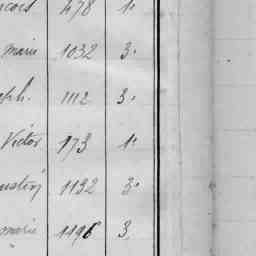 478 1.
marie 1032 3.
ph. 1112 3.
Victor 173 1.
1132 3.
marie 1196 3.